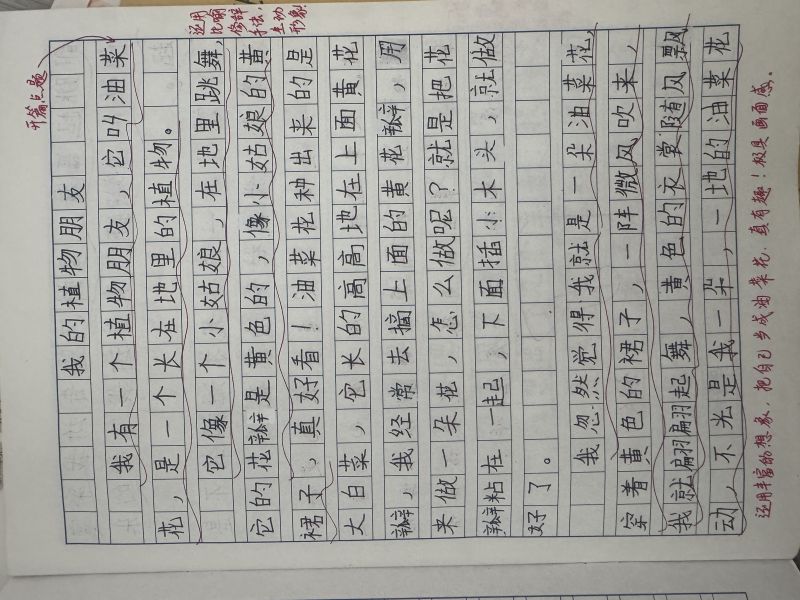 开篇点题
运用比喻修辞手法，生动形象
我的植物朋友
我有一个植物朋友，它叫油菜
花，是一个长在地里的植物。
它像一个小姑娘，在地里跳舞，
它的花瓣是黄色的，像小姑娘的黄
裙子，真好看！油菜花种出来的是
大白菜，它长的高高地在上面黄花
瓣，我经常去摘上面的黄花瓣，用
来做一朵花，怎么做呢？就是把花
瓣粘在一起，下面插小木头，就做
好了。
我忽然觉得我就是一朵油菜花，
穿着黄色的裙子，一阵微风吹来，
我就翩翩起舞，黄色的衣裳随风飘
动，不光是我一朵，一地的油菜花
运用丰富的想象，把自己当成油菜花，真有趣！极具画面感。